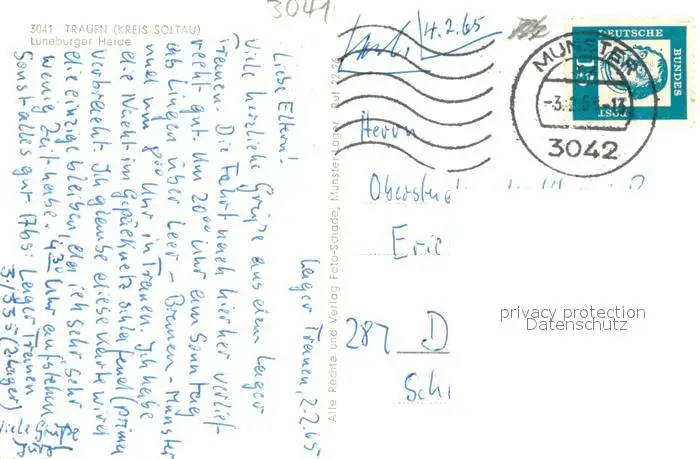 3041
3041 TRAUEN (KREIS SOLTAU)
Lüneburger Heide
Lager Trauen, 2.2.65
Liebe Eltern!
Viele herzliche Grüße aus dem Lager
Trauen. Die Fahrt nach hierher verlief
recht gut. Um 20°° Uhr am Sonntag
ab Lingen über Leer - Bremen - Munster
und um 8°° Uhr in Trauen. Ich habe
die Nacht im Gepäcknetz schlafend (prima)
verbracht. Ich glaube diese Karte wird
die einzige bleiben, da ich sehr sehr
wenig Zeit habe. 4³⁰ Uhr aufstehen
Sonst alles gut. Abs: Lager Trauen
3./335 (Z-Lager)
Viele Grüße
Alle Rechte und Verlag Foto-Schade, Munster-Lager, Ruf 22 96
14.2.65
DEUTSCHE
BUNDES
POST
15
MUNSTER
3042
Herrn
Eric
287 D
Schi
privacy protection
Datenschutz